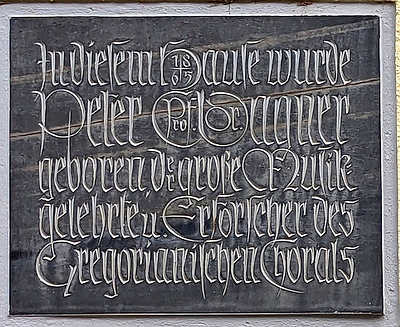 In diesem Hause wurde 1865
Peter Prof. Dr. Wagner
geboren, der große Musik-
gelehrte u. Erforscher des
Gregorianischen Chorals